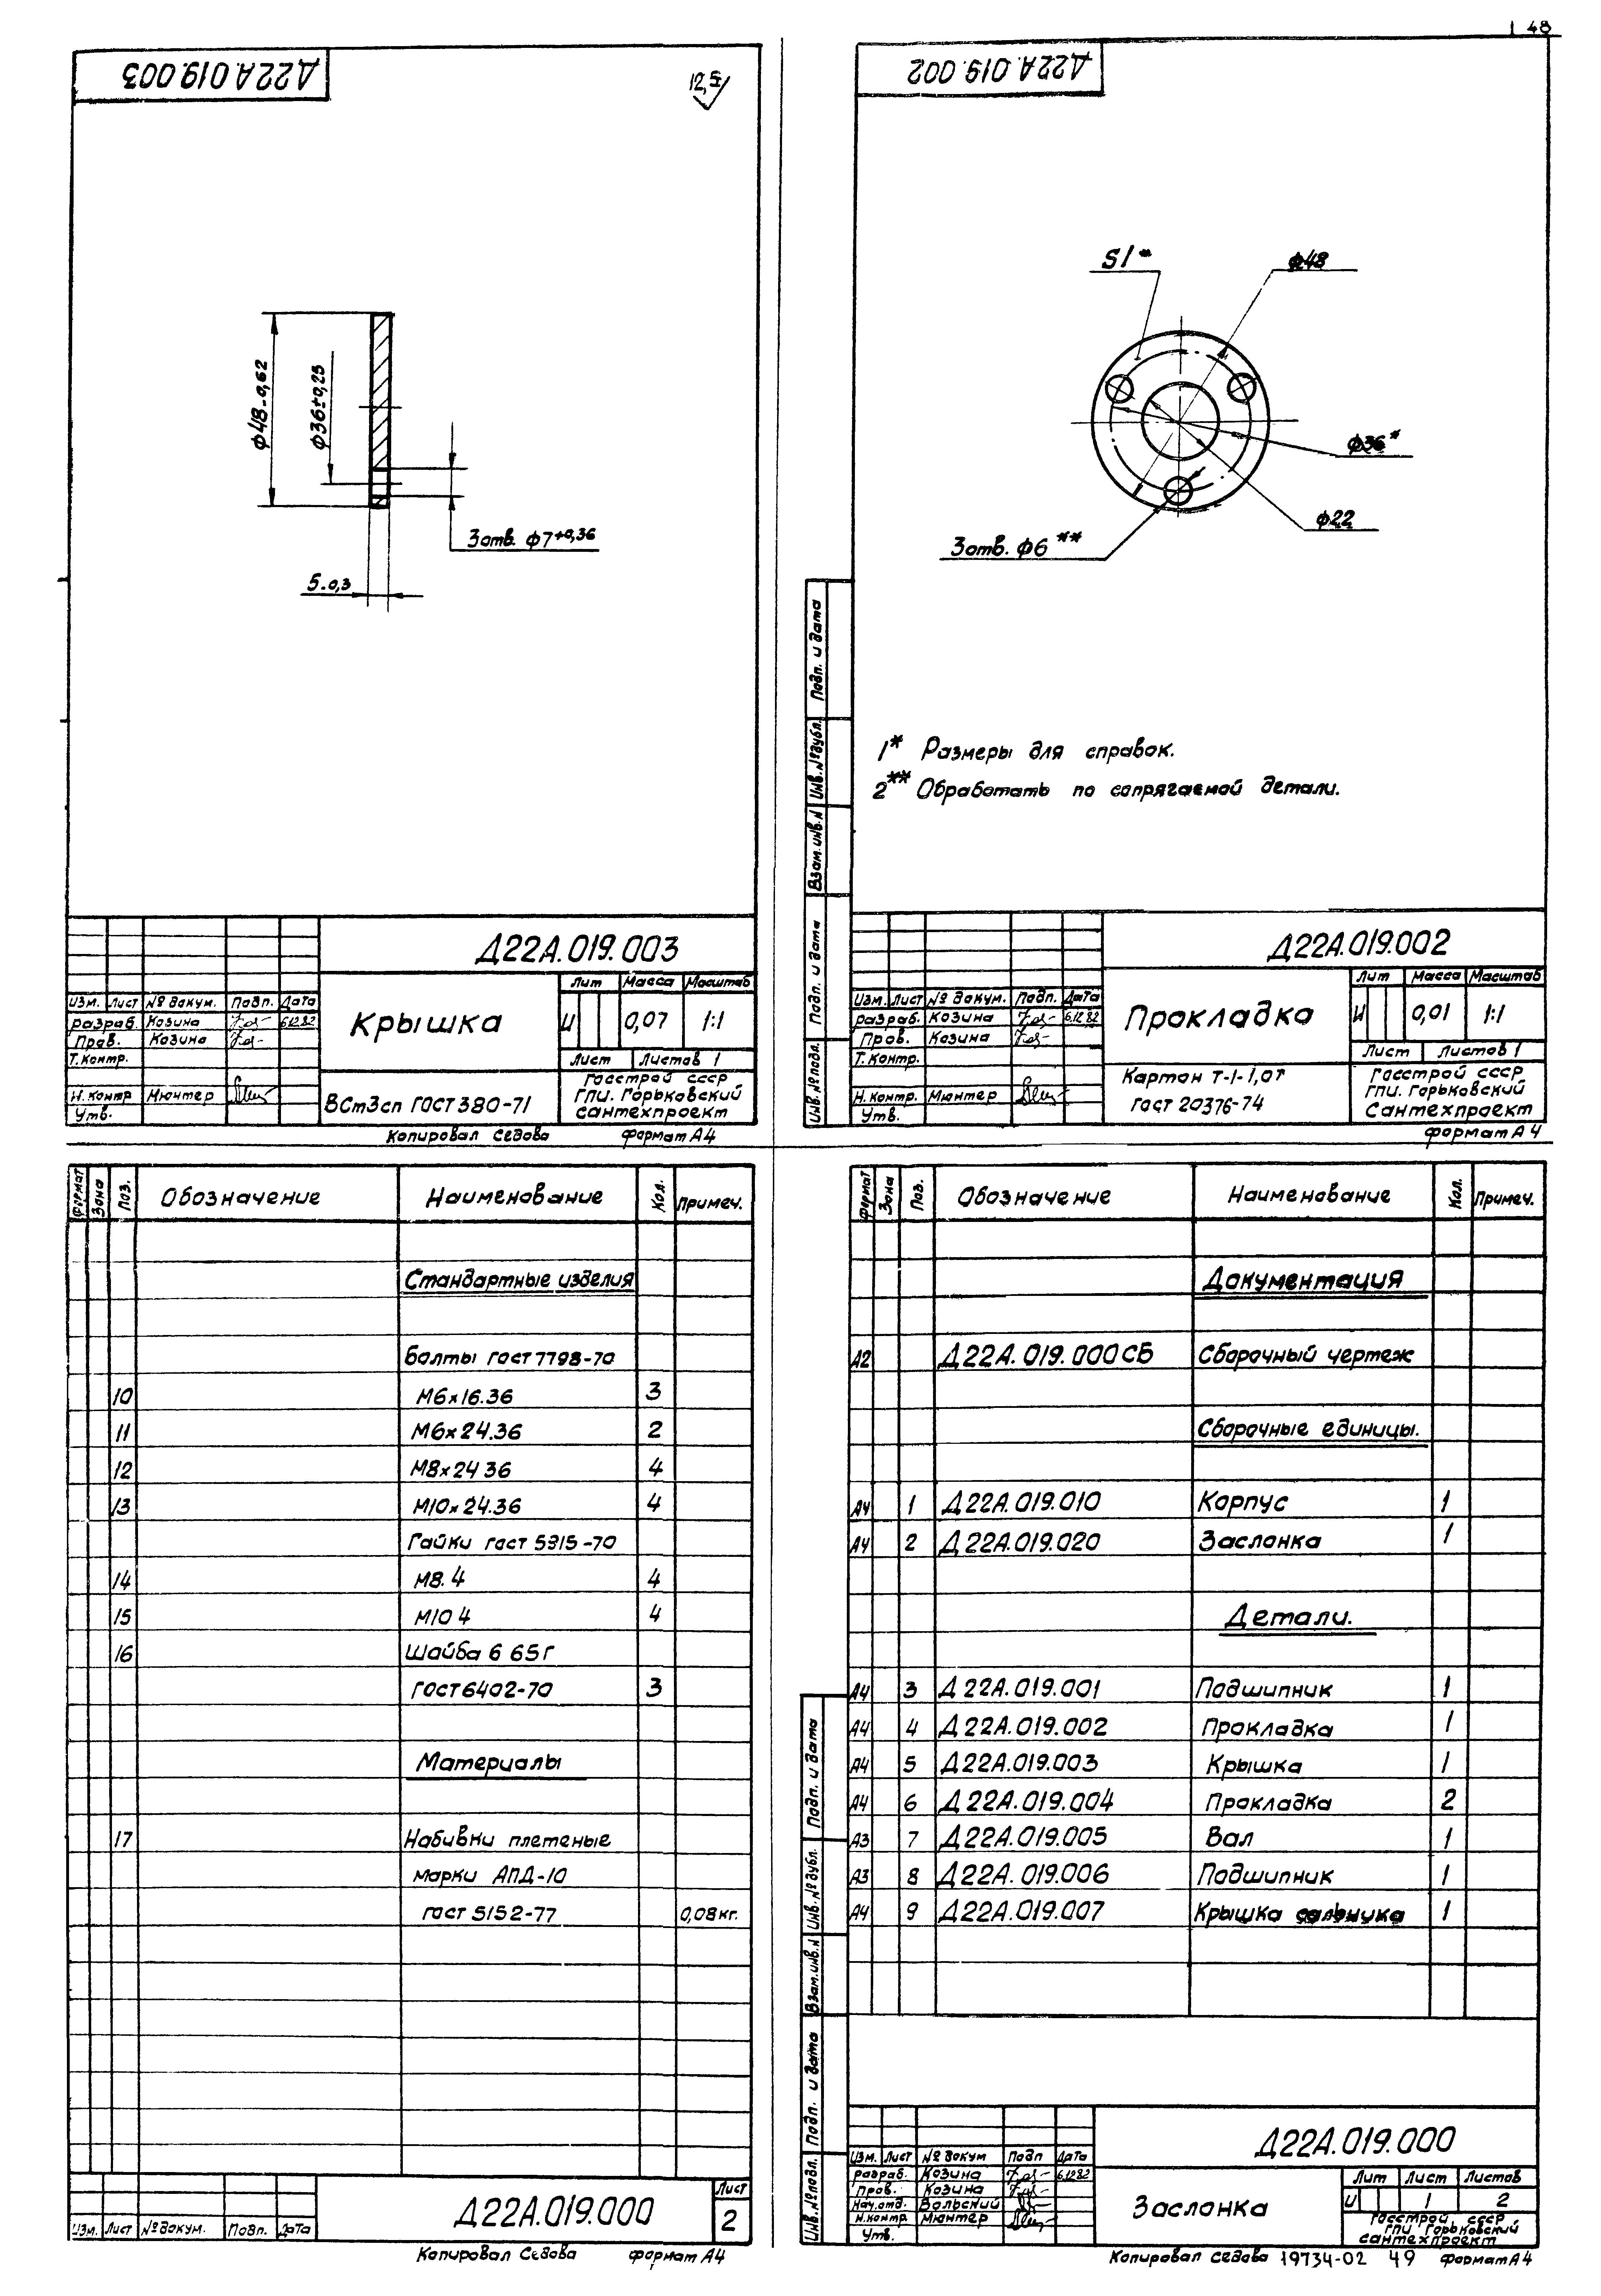 1 48
Д22А.019.003
12,5
ф48-0,62
ф36±0,25
3 отв. ф7+0,36
5-0,3
Д22А.019.003
Изм. Лист № докум. Подп. Дата
Разраб. Козина 6.12.82
Пров. Козина
Т.контр.
Н.контр Мюнтер
Утв.
Крышка
Лит Масса Масштаб
И 0,07 1:1
Лист Листов 1
ВСт3сп ГОСТ 380-71
Госстрой СССР
ГПИ. Горьковский
сантехпроект
Копировал Седова формат А4
Д22А.019.002
S1*
ф48
ф36*
ф22
3 отв. ф6**
1* Размеры для справок.
2** Обработать по сопрягаемой детали.
Подп. и дата
Инв. № дубл.
Взам. инв. N
Подп. и дата
Инв. № подл.
Д22А.019.002
Изм. Лист № докум. Подп. Дата
Разраб. Козина 6.12.82
Пров. Козина
Т.контр.
Н.контр. Мюнтер
Утв.
Прокладка
Лит Масса Масштаб
И 0,01 1:1
Лист Листов 1
Картон Т-1-1,0т
гост 20376-74
Госстрой СССР
ГПИ. Горьковский
Сантехпроект
формат А4
Формат Зона Поз. Обозначение Наименование Кол. Примеч.
Стандартные изделия
Болты гост 7798-70
10 М6х16.36 3
11 М6х24.36 2
12 М8х24 36 4
13 М10х24.36 4
Гайки гост 5915-70
14 М8.4 4
15 М10 4 4
16 Шайба 6 65Г
гост 6402-70 3
Материалы
17 Набивки плетеные
марки АПД-10
гост 5152-77 0,08кг.
Изм. Лист № докум. Подп. Дата
Д22А.019.000
Лист
2
Копировал Седова формат А4
Формат Зона Поз. Обозначение Наименование Кол. Примеч.
Документация
А2 Д22А.019.000СБ Сборочный чертеж
Сборочные единицы.
А4 1 Д22А.019.010 Корпус 1
А4 2 Д22А.019.020 Заслонка 1
Детали.
А4 3 Д22А.019.001 Подшипник 1
А4 4 Д22А.019.002 Прокладка 1
А4 5 Д22А.019.003 Крышка 1
А4 6 Д22А.019.004 Прокладка 2
А3 7 Д22А.019.005 Вал 1
А3 8 Д22А.019.006 Подшипник 1
А4 9 Д22А.019.007 Крышка сальника 1
Подп. и дата
Инв. № дубл.
Взам. инв. N
Подп. и дата
Инв. № подл.
Д22А.019.000
Изм. Лист № докум Подп Дата
Разраб. Козина 6.12.82
Пров. Козина
Нач.отд. Вольский
Н.контр Мюнтер
Утв.
Заслонка
Лит Лист Листов
И 1 2
Госстрой СССР
ГПИ Горьковский
сантехпроект
Копировал Седова 19734-02 49 формат А4